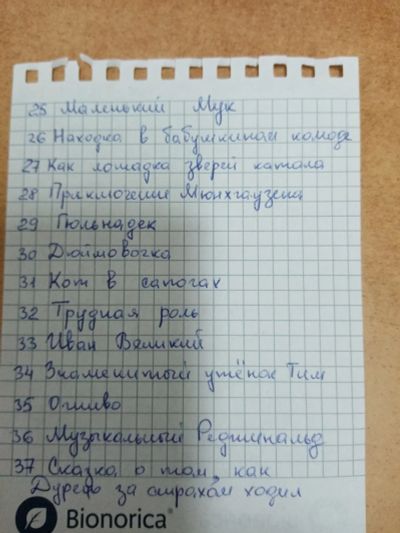 25 Маленький Мук
26 Находка в бабушкином комоде
27 Как лошадка зверей катала
28 Приключение Мюнхгаузена
29 Гюльнадек
30 Дюймовочка
31 Кот в сапогах
32 Трудная роль
33 Иван Великий
34 Знаменитый утёнок Тим
35 Огниво
36 Музыкальный Реджинальд
37 Сказка о том, как
Дурень за страхом ходил
Bionorica®